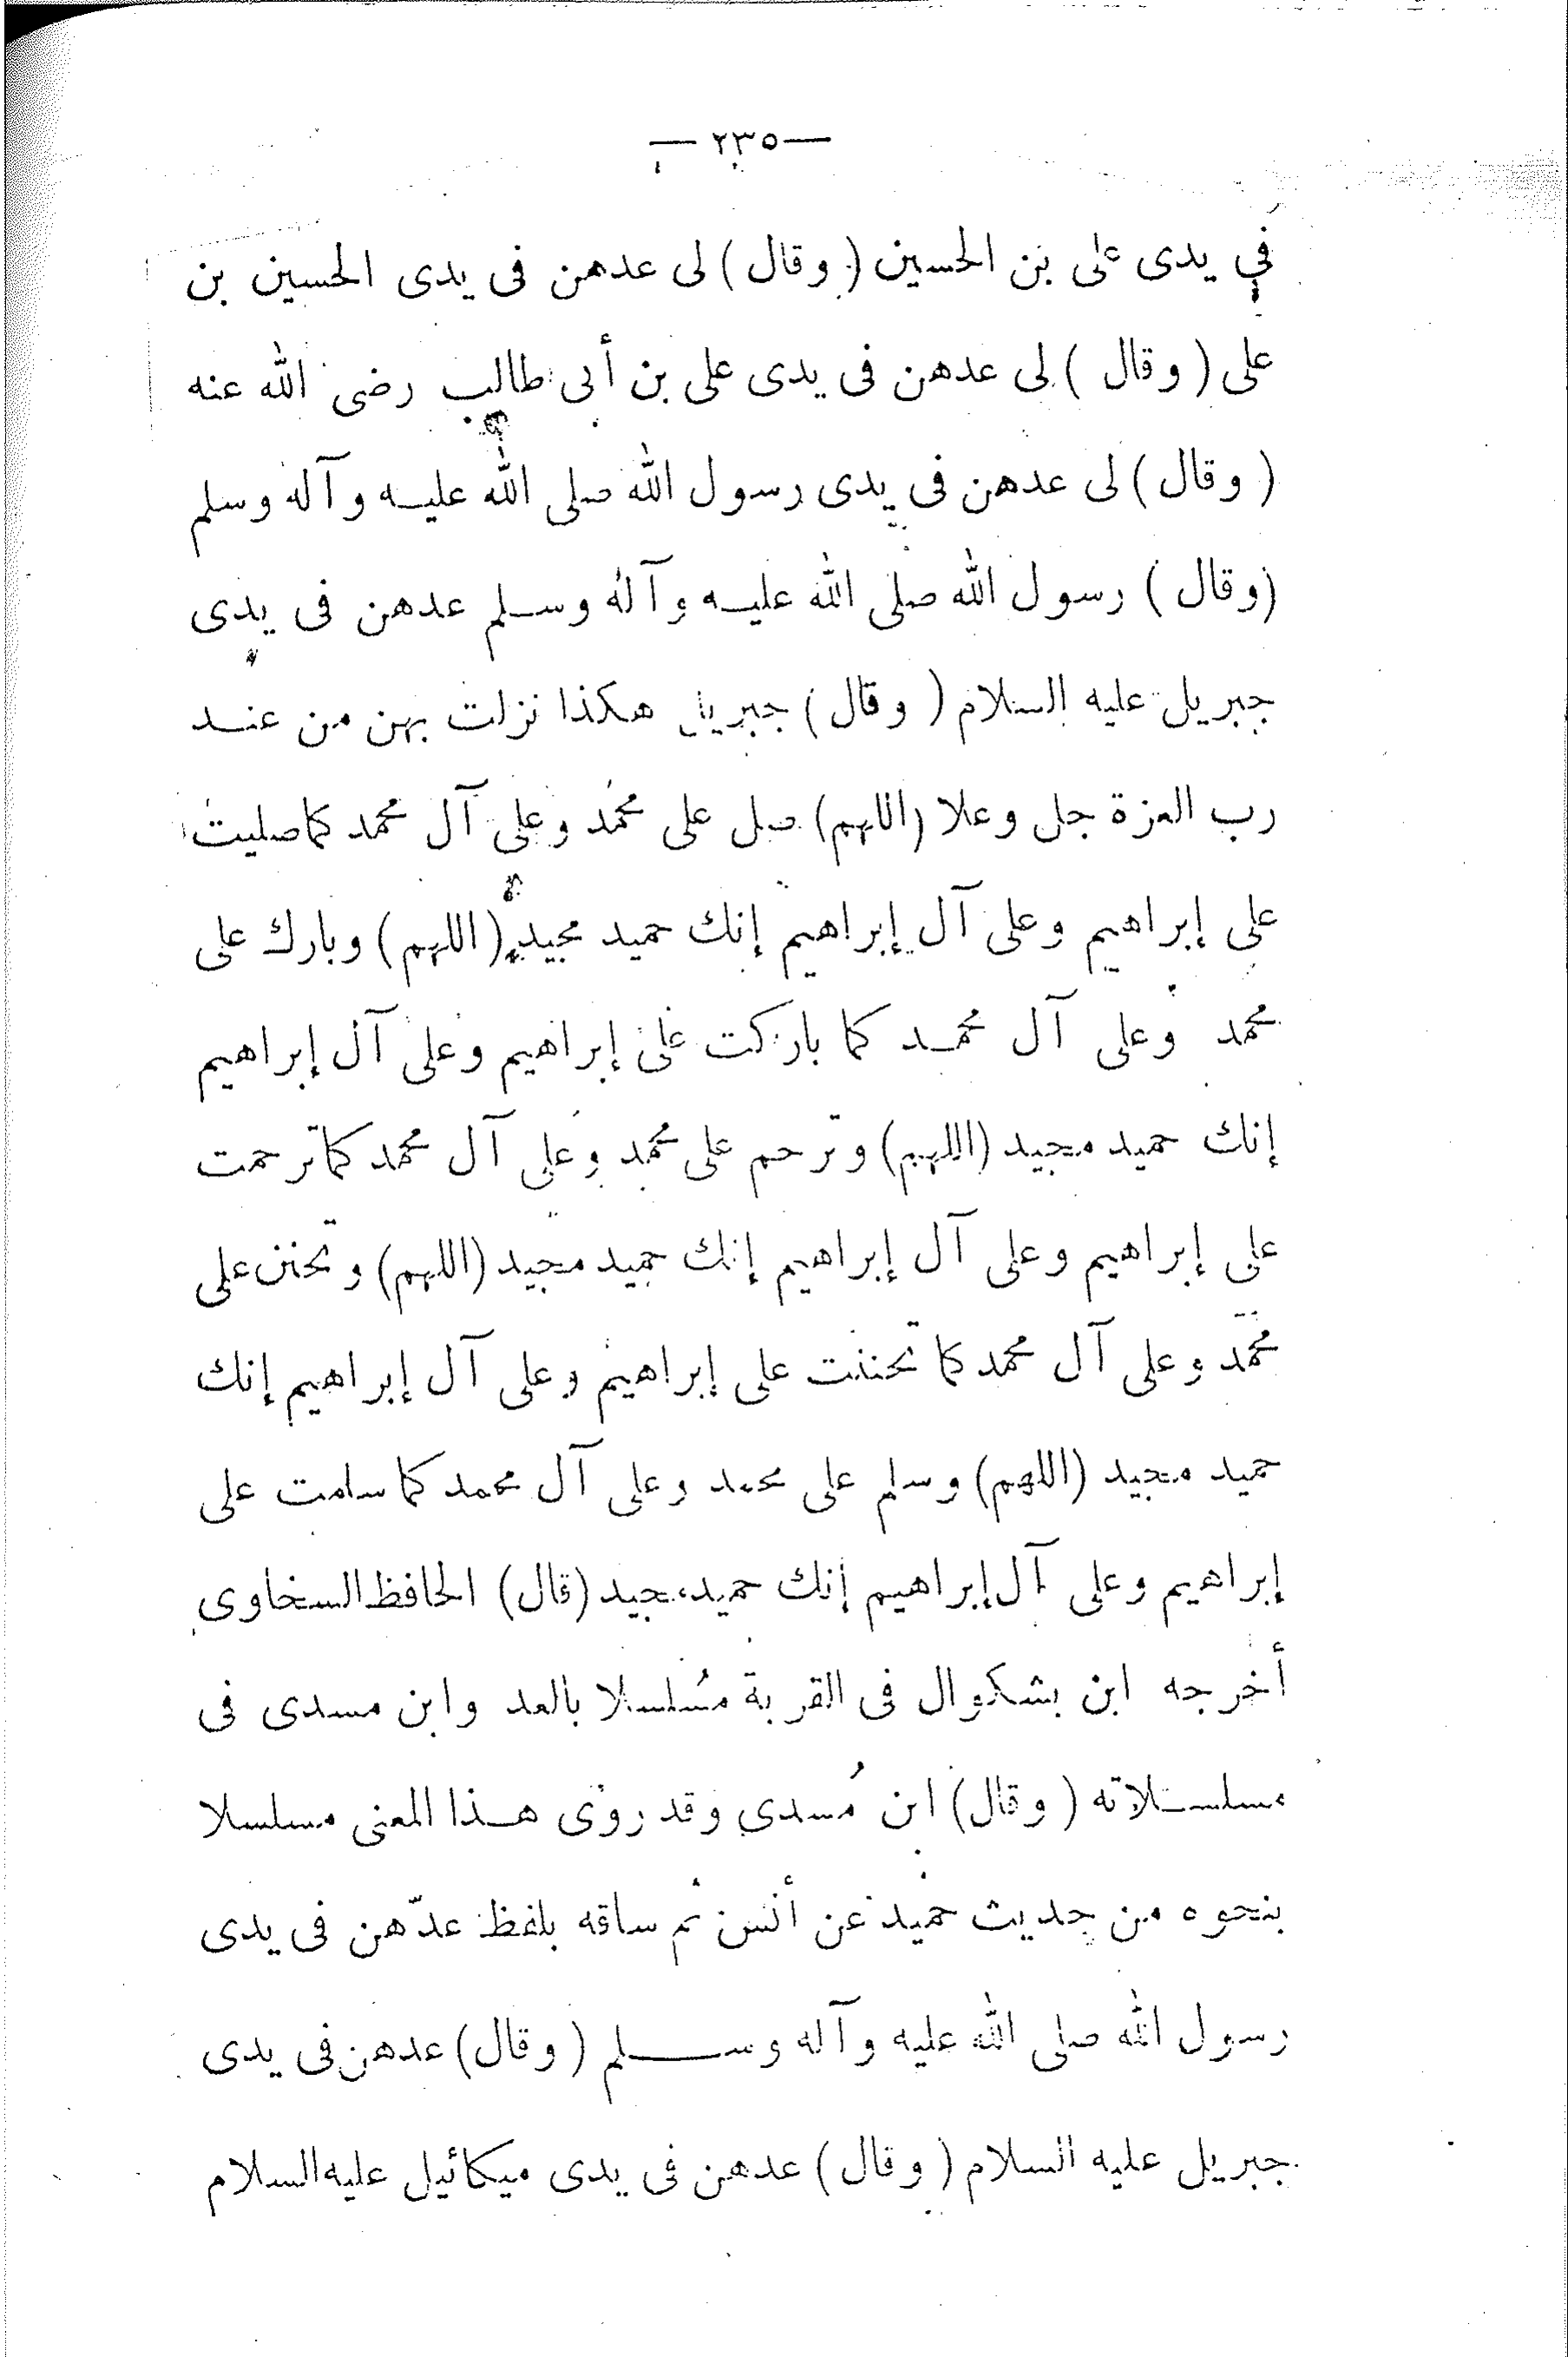 — ٢٣٥ —
فى يدى على بن الحسين (وقال) لى عدهن فى يدى الحسين بن
على (وقال) لى عدهن فى يدى على بن أبى طالب رضى الله عنه
(وقال) لى عدهن فى يدى رسول الله صلى الله عليه وآله وسلم
(وقال) رسول الله صلى الله عليه وآله وسلم عدهن فى يدى
جبريل عليه السلام (وقال) جبريل هكذا نزلت بهن من عند
رب العزة جل وعلا (اللهم) صل على محمد وعلى آل محمد كما صليت
على إبراهيم وعلى آل إبراهيم إنك حميد مجيد (اللهم) وبارك على
محمد وعلى آل محمد كما باركت على إبراهيم وعلى آل إبراهيم
إنك حميد مجيد (اللهم) وترحم على محمد وعلى آل محمد كما ترحمت
على إبراهيم وعلى آل إبراهيم إنك حميد مجيد (اللهم) وتحنن على
محمد وعلى آل محمد كما تحننت على إبراهيم وعلى آل إبراهيم إنك
حميد مجيد (اللهم) وسلم على محمد وعلى آل محمد كما سلمت على
إبراهيم وعلى آل إبراهيم إنك حميد مجيد (قال) الحافظ السخاوى
أخرجه ابن بشكوال فى القربة مسلسلا بالعد وابن مسدى فى
مسلسلاته (وقال) ابن مسدى وقد روى هذا المعنى مسلسلا
بنحوه من حديث حميد عن أنس ثم ساقه بلفظ عدّهن فى يدى
رسول الله صلى الله عليه وآله وسلم (وقال) عدهن فى يدى
جبريل عليه السلام (وقال) عدهن فى يدى ميكائيل عليه السلام